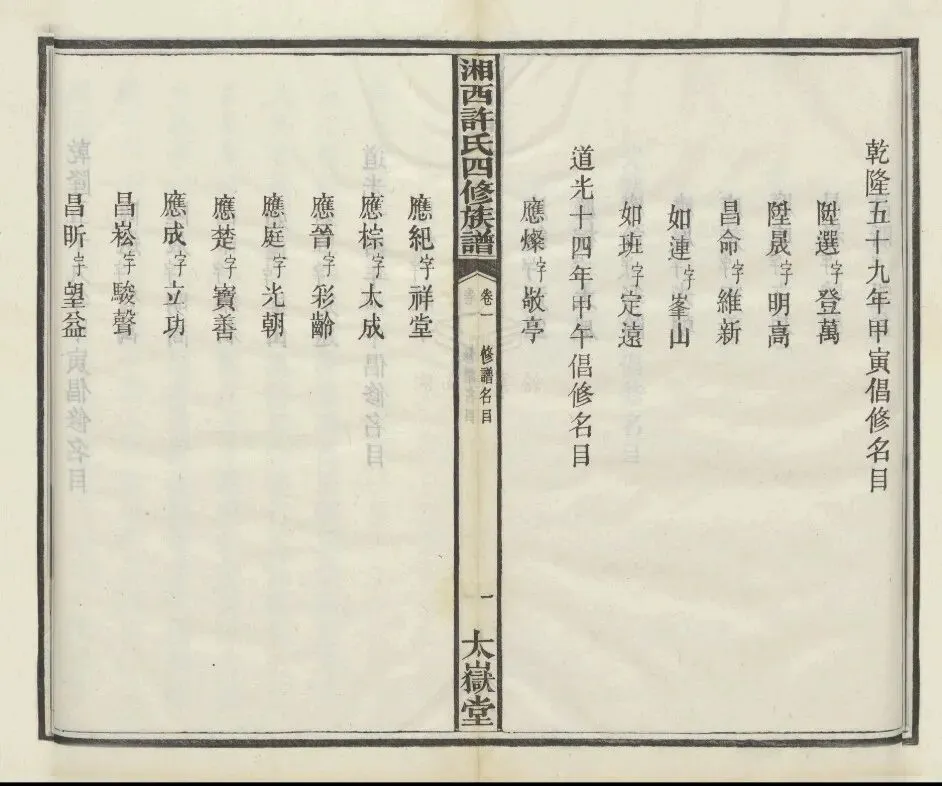 乾隆五十九年甲寅倡修名目
陞選字登萬
陞晟字明高
昌命字維新
如漣字峯山
如班字定遠
道光十四年甲午倡修名目
應燦字敬亭
湘西許氏四修族譜
卷一
修譜名目
一
太嶽堂
應紀字祥堂
應棕字太成
應晉字彩齡
應庭字光朝
應楚字寶善
應成字立功
昌崧字駿聲
昌昕字望益